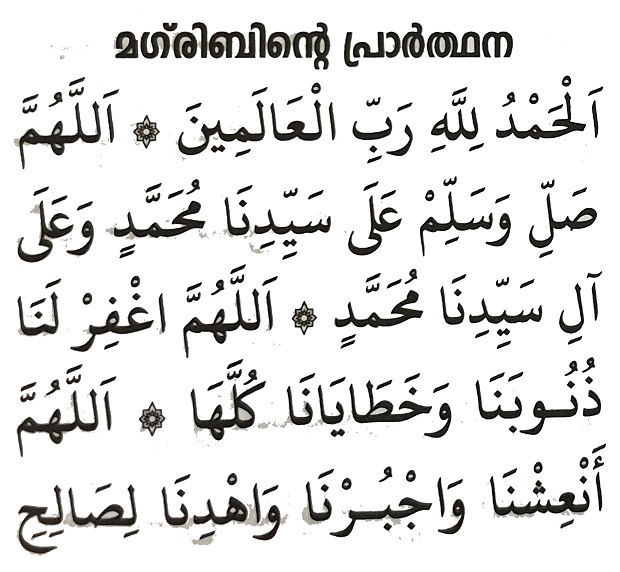 മഗ്‌രിബിന്റെ പ്രാർത്ഥന
اَلْحَمْدُ لِلَّهِ رَبِّ الْعَالَمِينَ ۞ اَللَّهُمَّ
صَلِّ وَسَلِّمْ عَلَى سَيِّدِنَا مُحَمَّدٍ وَعَلَى
آلِ سَيِّدِنَا مُحَمَّدٍ ۞ اَللَّهُمَّ اغْفِرْ لَنَا
ذُنُـوبَنَا وَخَطَايَانَا كُلَّهَا ۞ اَللَّهُمَّ
أَنْعِشْنَا وَاجْبُـرْنَا وَاهْدِنَا لِصَالِحِ